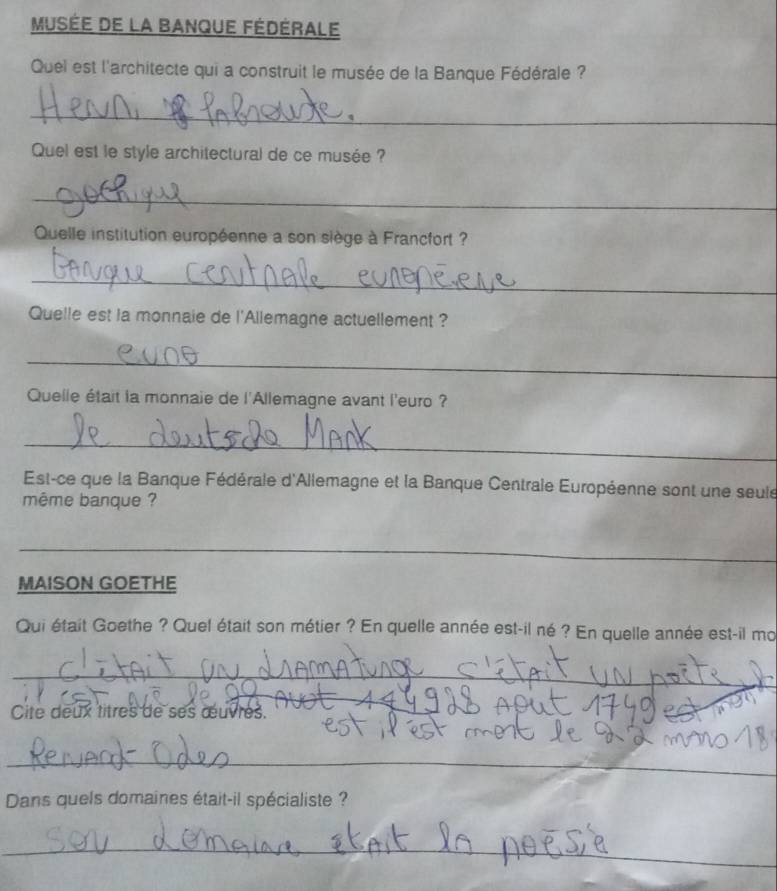 MUSÉE DE LA BANQUE FÉDÉRALE
Quel est l'architecte qui a construit le musée de la Banque Fédérale ?
Henri labrouste.
Quel est le style architectural de ce musée ?
gothique
Quelle institution européenne a son siège à Francfort ?
banque centrale
Quelle est la monnaie de l'Allemagne actuellement ?
euro
Quelle était la monnaie de l'Allemagne avant l'euro ?
le deutsche Mark
Est-ce que la Banque Fédérale d'Allemagne et la Banque Centrale Européenne sont une seule
même banque ?
MAISON GOETHE
Qui était Goethe ? Quel était son métier ? En quelle année est-il né ? En quelle année est-il mo
c'était un dramaturge c'était un poète
il est né le 28 Aout 1749
Cite deux titres de ses œuvres.
est il est mort le 22 mars 18
Renard - Odes
Dans quels domaines était-il spécialiste ?
son domaine était la poésie